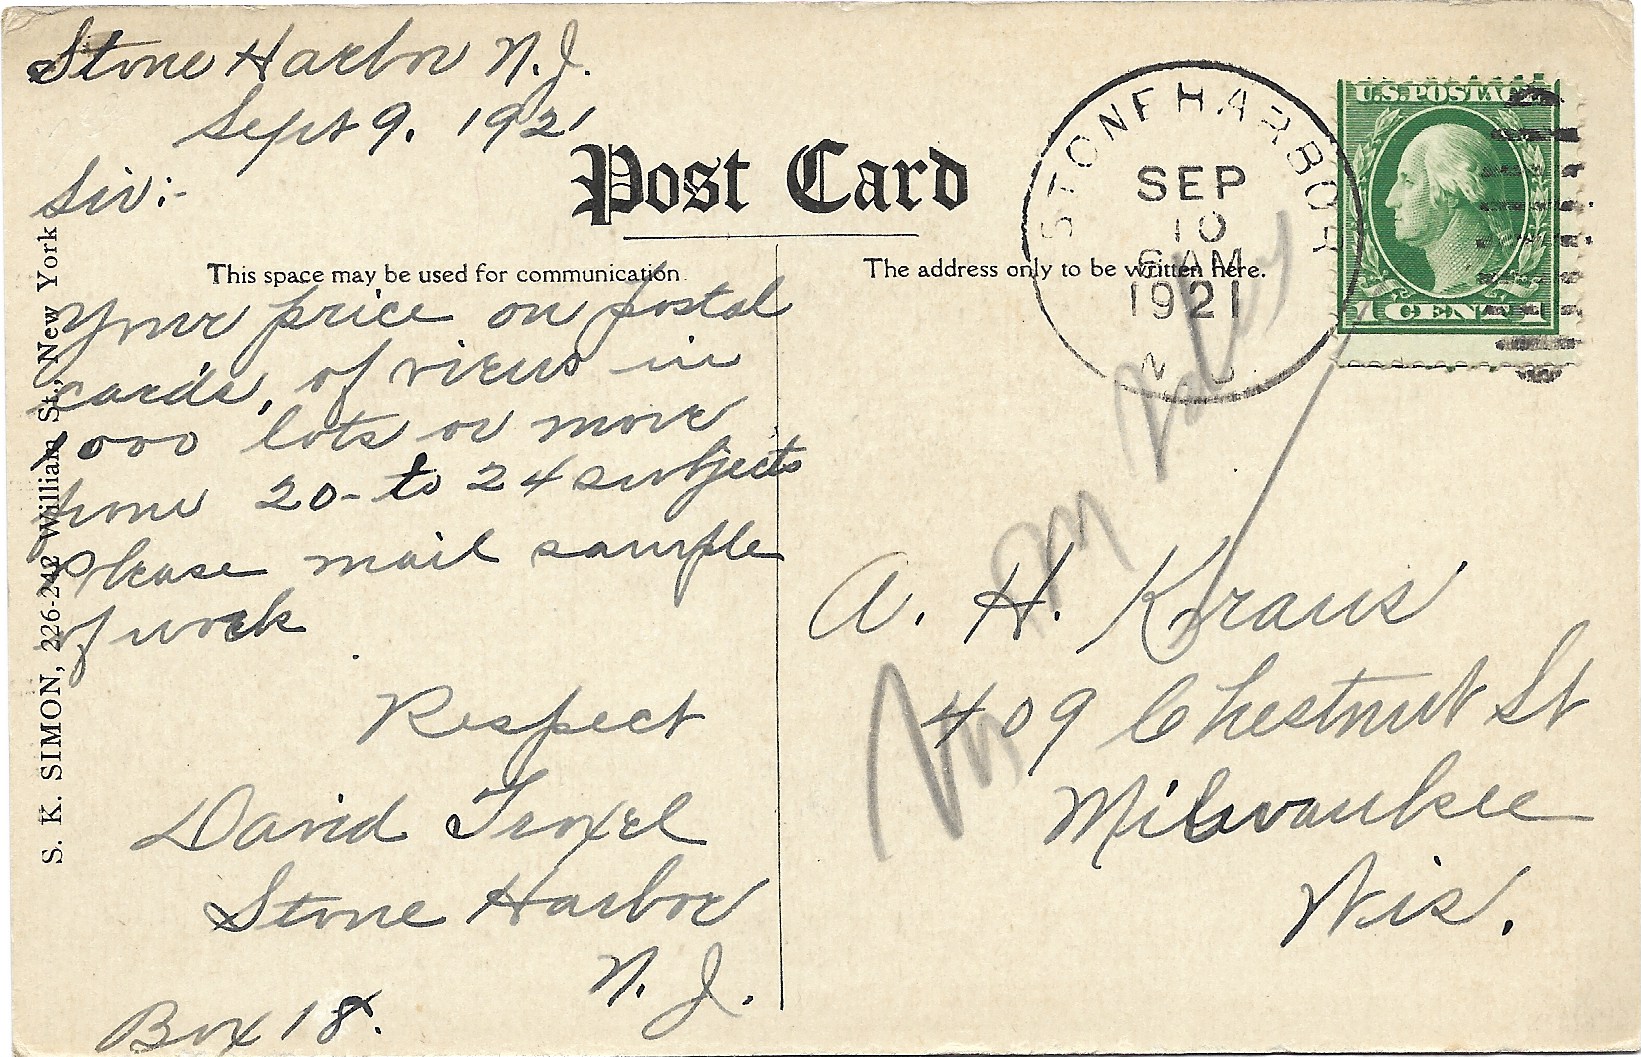 Stone Harbor N.J.
Sept 9. 1921
Sir:-
Post Card
This space may be used for communication
Your price on postal
cards, of views in
1000 lots or more
20- to 24 subjects
Please mail sample
of work
Respect
David Troxel
Stone Harbor
N. J.
Box 18.
S. K. SIMON, 226-242 William St., New York
The address only to be written here.
STONE HARBOR
SEP
10
6 AM
1921
N J
U.S. POSTAGE
1 CENT 1
A. H. Kraus
409 Chestnut St
Milwaukee
Wis.